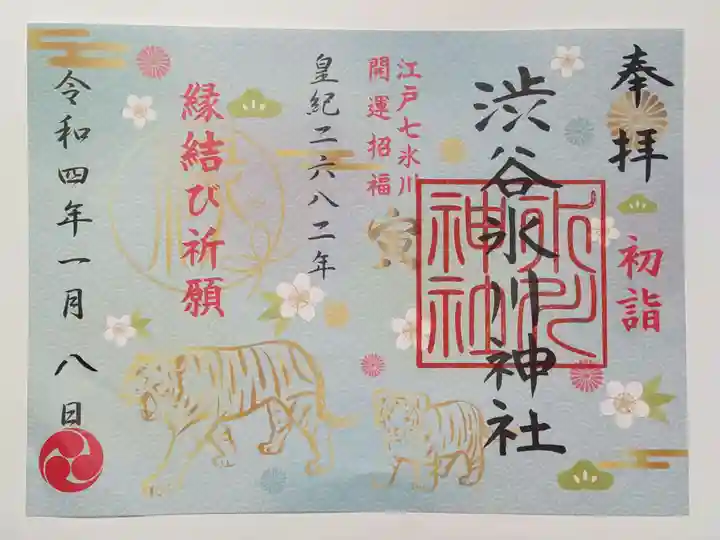 奉拝
初詣
渋谷氷川神社
氷川
神社
江戸七氷川
開運招福
寅
皇紀二六八二年
縁結び祈願
令和四年一月八日